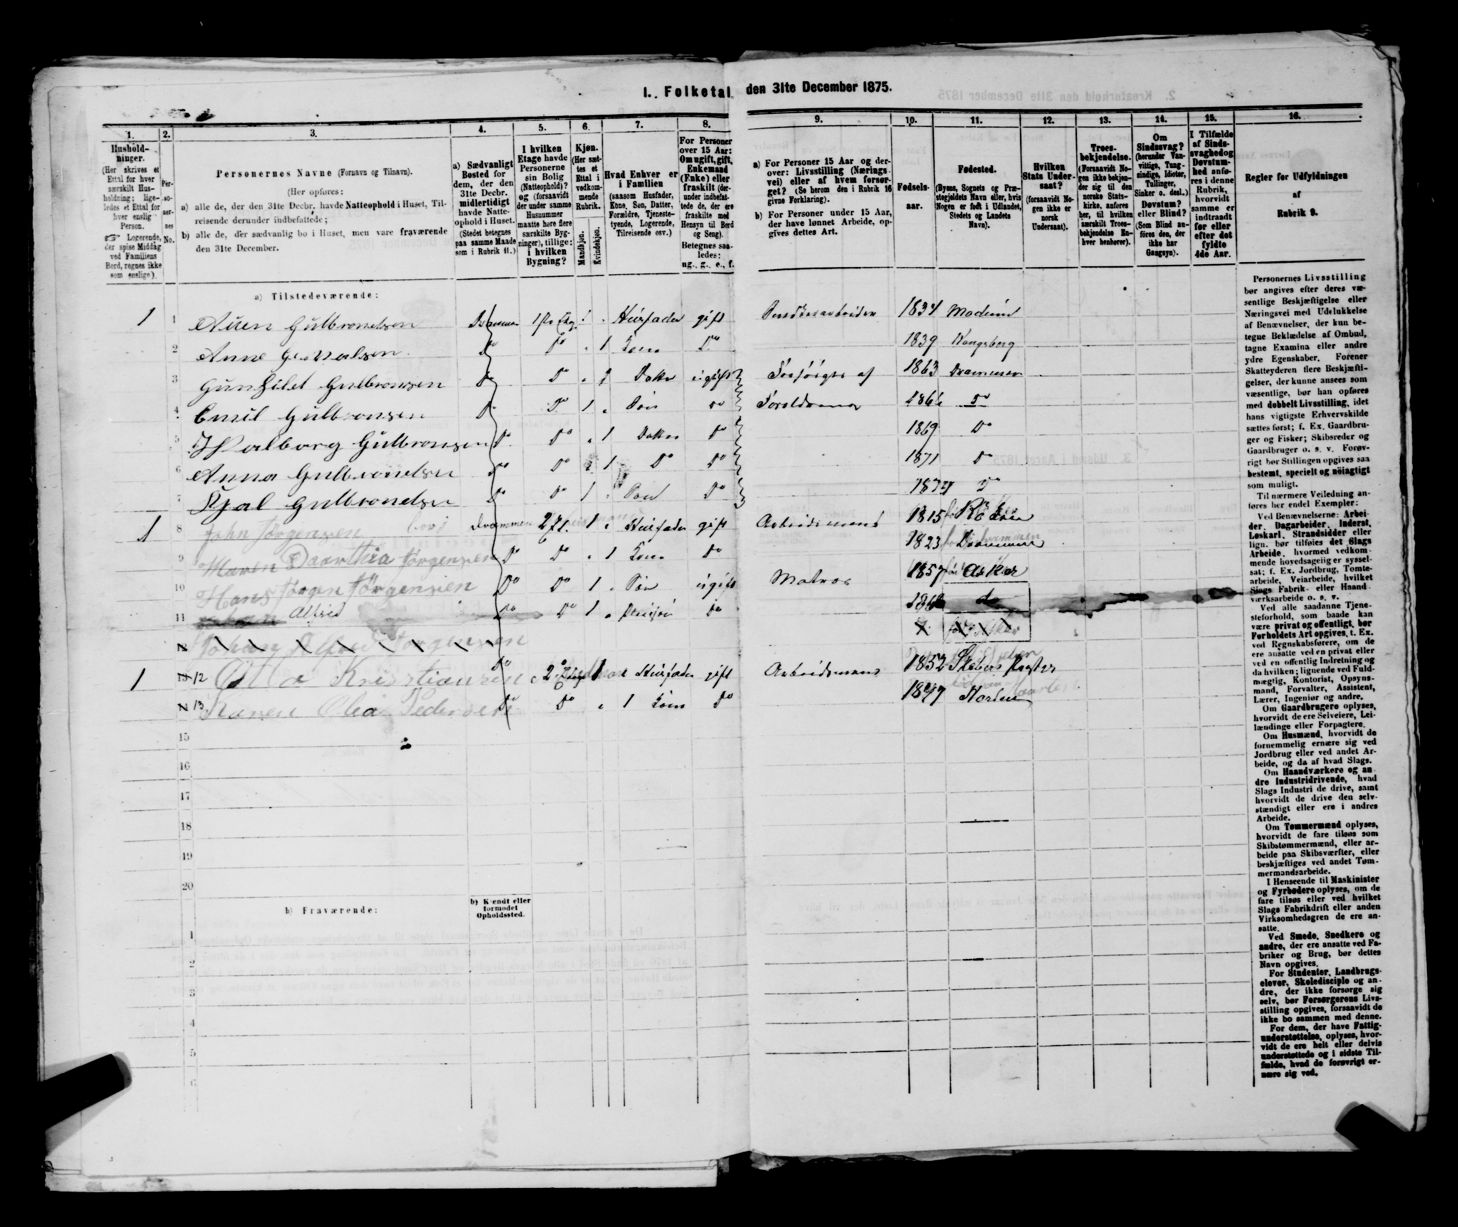 I. Folketal den 31te December 1875.
1. 2. 3. 4. 5. 6. 7. 8. 9. 10. 11. 12. 13. 14. 15. 16.
Hushold-
ninger.
(Her skrives et
Ettal for hver
særskilt Hus-
holdning; lige-
ledes et Ettal for
hver enslig
Person.
Logerende,
der spise Middag
ved Familiens
Bord, regnes ikke
som enslige).
Per-
so-
ner-
nes
No.
Personernes Navne (Fornavn og Tilnavn).
(Her opføres:
a) alle de, der den 31te Decbr. havde Natteophold i Huset, Til-
reisende derunder indbefattede;
b) alle de, der sædvanlig bo i Huset, men vare fraværende
den 31te December.
a) Sædvanligt
Bosted for
dem, der den
31te Decbr.
midlertidigt
havde Natte-
ophold i Huset.
(Stedet betegnes
paa samme Maade
som i Rubrik 11.)
I hvilken
Etage havde
Personerne
sin Bolig
(Natteophold)?
og (forsaavidt
der under samme
Husnummer
maatte høre flere
særskilte Byg-
ninger), tillige:
i hvilken
Bygning?
Kjøn.
(Her sæt-
tes et
Ettal i
vedkom-
mende
Rubrik.)
Mandkjøn.
Kvindekjøn.
Hvad Enhver er
i Familien
(saasom Husfader,
Kone, Søn, Datter,
Forældre, Tjeneste-
tyende, Logerende,
Tilreisende osv.)
For Personer
over 15 Aar:
Om ugift, gift,
Enkemand
(Enke) eller
fraskilt (der-
under indbefat-
tede de, der ere
fraskilte med
Hensyn til Bord
og Seng).
Betegnes saa-
ledes:
ug., g., e., f.
a) For Personer 15 Aar og der-
over: Livsstilling (Nærings-
vei) eller af hvem forsør-
get? (Se herom den i Rubrik 16
givne Forklaring).
b) For Personer under 15 Aar,
der have lønnet Arbeide, op-
gives dettes Art.
Fødsels-
aar.
Fødested.
(Byens, Sognets og Præ-
stegjeldets Navn eller, hvis
Nogen er født i Udlandet,
Stedets og Landets
Navn).
Hvilken
Stats Under-
saat?
(forsaavidt No-
gen ikke er
norsk
Undersaat).
Troes-
bekjendelse.
(Forsaavidt No-
gen ikke bekjen-
der sig til den
norske Stats-
kirke, anføres
her, til hvilken
særskilt Troes-
bekjendelse En-
hver henhører).
Om
Sindssvag?
(herunder Van-
vittige, Tung-
sindige, Idioter,
Tullinger,
Sinker o. desl.)
Døvstum?
eller Blind?
(Som Blind an-
føres den, der
ikke har
Gangsyn).
I Tilfælde
af Sinds-
svaghed og
Døvstum-
hed anfø-
res i denne
Rubrik,
hvorvidt
samme er
indtraadt
før eller
efter det
fyldte
4de Aar.
Regler for Udfyldningen
af
Rubrik 9.
a) Tilstedeværende:
1 1 Gulbrandsen Drammen Huusfader gift 1834 Modum
2 Anne D° D° 1 Kone D° 1839 Kongsberg
3 Gunhild Gulbransen D° D° Datter ugift Forsørges af 1863 Drammen
4 Emil Gulbransen D° D° 1 Søn Forældrene D°
5 Valborg Gulbransen D° D° 1 Datter D° 1869 D°
6 Anna Gulbrandsen D° D° 1 D° D° 1871 D°
7 Gulbrandsen D° D° 1 Søn D° D°
1 8 John Jørgensen Drammen 2 Et. 1 Huusfader gift Arbeidsmand 1815
9 Maren Daarthia Jørgensen D° D° 1 Kone D° 1823 Drammen
10 Hans Jørgen Jørgensen D° D° 1 Søn ugift Matros 1857 Asker
11 Alfred D° D° 1 D° do
Johan Alfred Jørgensen
1 12 Otto Kristiansen D° 1 Huusfader gift Arbeidsmand 1852
13 Karen Olia Pedersen D° D° 1 Kone D° 1847 Horten
15
16
17
18
19
20
b) Fraværende:
b) Kjendt eller
formodet
Opholdssted.
1
2
3
4
5
6
Personernes Livsstilling
bør angives efter deres væ-
sentlige Beskjæftigelse eller
Næringsvei med Udelukkelse
af Benævnelser, der kun be-
tegne Beklædelse af Ombud,
tagne Examina eller andre
ydre Egenskaber. Forener
Skatteyderen flere Beskjæfti-
gelser, der kunne ansees som
væsentlige, bør han opføres
med dobbelt Livsstilling, idet
hans vigtigste Erhvervskilde
sættes først; f. Ex. Gaardbru-
ger og Fisker; Skibsreder og
Gaardbruger o. s. v. Forøv-
rigt bør Stillingen opgives saa
bestemt, specielt og nøiagtigt
som muligt.
Til nærmere Veiledning an-
føres her endel Exempler:
Ved Benævnelserne: Arbei-
der, Dagarbeider, Inderst,
Løskarl, Strandsidder eller
lign. bør tilføies det Slags
Arbeide, hvormed vedkom-
mende hovedsagelig er syssel-
sat; f. Ex. Jordbrug, Tomte-
arbeide, Veiarbeide, hvilket
Slags Fabrik- eller Haand-
værksarbeide o. s. v.
Ved alle saadanne Tjene-
steforhold, som baade kan
være privat og offentligt, bør
Forholdets Art opgives, t. Ex.
ved Regnskabsførere, om de
ere ansatte ved en privat eller
ved en offentlig Indretning og
da hvilken; lignende ved Fuld-
mægtig, Kontorist, Opsyns-
mand, Forvalter, Assistent,
Lærer, Ingeniør og andre.
Om Gaardbrugere oplyses,
hvorvidt de ere Selveiere, Lei-
lændinge eller Forpagtere.
Om Husmænd, hvorvidt de
fornemmelig ernære sig ved
Jordbrug eller ved andet Ar-
beide, og da af hvad Slags.
Om Haandværkere og an-
dre Industridrivende, hvad
Slags Industri de drive, samt
hvorvidt de drive den selv-
stændigt eller ere i andres
Arbeide.
Om Tømmermænd oplyses,
hvorvidt de fare tilsøs som
Skibstømmermænd, eller ar-
beide paa Skibsværfter, eller
beskjæftiges ved andet Tøm-
mermandsarbeide.
I Henseende til Maskinister
og Fyrbødere oplyses, om de
fare tilsøs eller ved hvilket
Slags Fabrikdrift eller anden
Virksomhedsgren de ere an-
satte.
Ved Smede, Snedkere og
andre, der ere ansatte ved Fa-
briker og Brug, bør dettes
Navn opgives.
For Studenter, Landbrugs-
elever, Skoledisciple og an-
dre, der ikke forsørge sig
selv, bør Forsørgerens Livs-
stilling opgives, forsaavidt de
ikke bo sammen med denne.
For dem, der have Fattig-
understøttelse, oplyses, hvor-
vidt de ere helt eller delvis
understøttede og i sidste Til-
fælde, hvad de forøvrigt er-
nære sig ved.